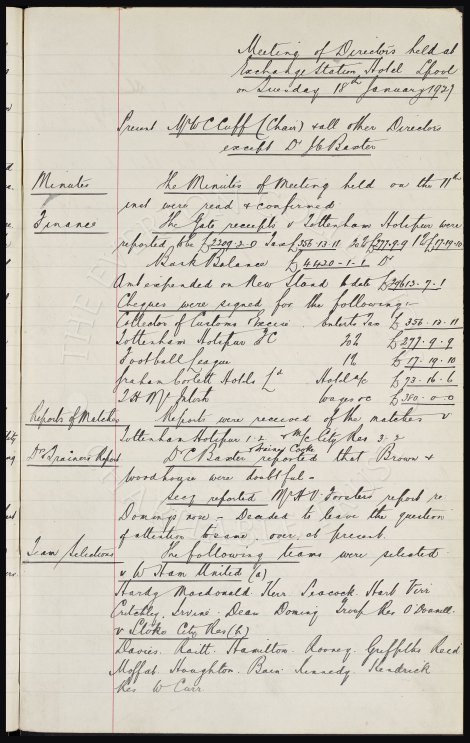 Meeting of Directors held at
Exchange Station Hotel Lpool
on Tuesday 18th January 1927
Present Mr W C Cuff (Chair) & all other Directors
except Dr J C Baxter
Minutes The Minutes of Meeting held on the 11th
inst were read & confirmed.
Finance The Gate receipts v Tottenham Hotspur were
reported to be £2209-2-0 Tax £356-13-11 20% £277-9-9 1% £17-19-10
Bank Balance £4420-1-1 Dr
Amt expended on New Stand to date £29613-7-1
Cheques were signed for the following:-
Collector of Customs & Excise Enterts Tax £356-13-11
Tottenham Hotspur FC 20% £277-9-9
Football League 1% £17-19-10
Graham Corlett Hotels Ld Hotel a/c £73-16-6
T H McIntosh wages &c £380-0-0
Reports of Matches Reports were received of the matches v
Tottenham Hotspur 1-2 & M/c City Res 3-2
Drs & Trainers Report Dr C Baxter & Trainer Cooke reported that Brown &
Woodhouse were doubtful.
Secy reported Mr H V Forsters report re
Domings nose - Decided to leave the question
of attention to same over, at present.
Team Selections The following teams were selected
v W Ham United (a)
Hardy Macdonald Kerr Peacock Hart Virr
Critchley Irvine Dean Doming Troup Res O'Donnell
v Stoke City Res (h)
Davies. Raitt. Hamilton. Rooney. Griffiths Reed
Moffat. Houghton. Bain. Kennedy. Kendrick
Res W Curr